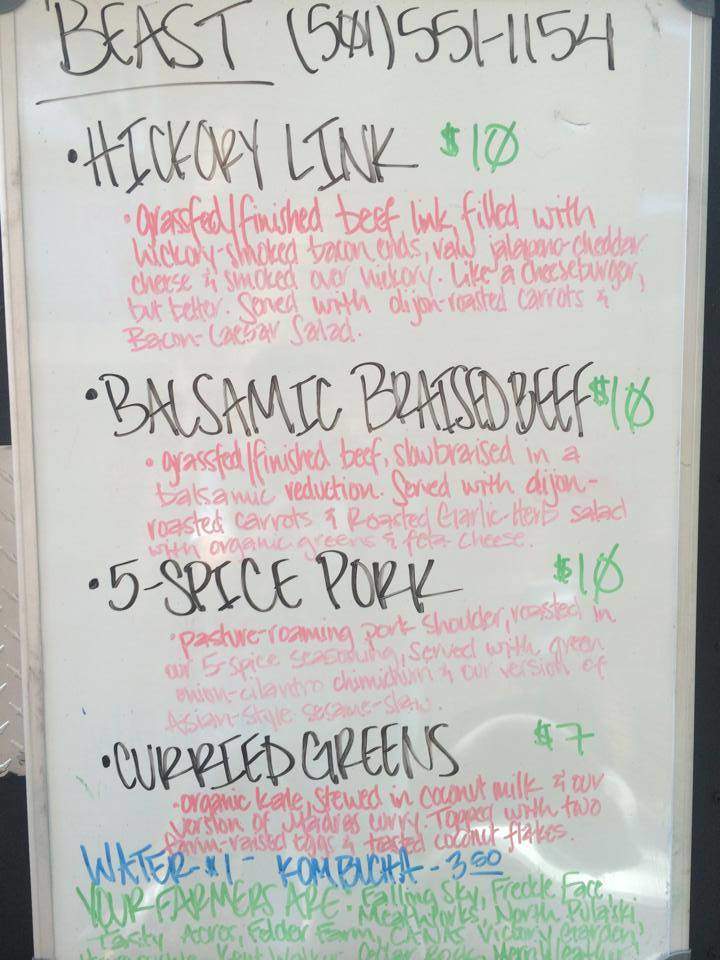 BEAST (501)551-1154
• HICKORY LINK $10
• grassfed/finished beef link, filled with
hickory-smoked bacon ends, raw jalapano-cheddar
cheese & smoked over hickory. Like a cheeseburger,
but better. Served with dijon-roasted carrots &
Bacon-Caesar Salad.
• BALSAMIC BRAISED BEEF $10
• grassfed/finished beef, slow braised in a
balsamic reduction. Served with dijon-
roasted carrots & Roasted Garlic-Herb salad
with organic greens & feta cheese.
• 5-SPICE PORK $10
• pasture-roaming pork shoulder, roasted in
our 5-spice seasoning, served with green
onion-cilantro chimichurri & our version of
Asian-style sesame-slaw.
• CURRIED GREENS $7
• organic kale, stewed in coconut milk & our
version of Madras curry. Topped with two
farm-raised eggs & toasted coconut flakes.
WATER $1 - KOMBUCHA - 3.50
YOUR FARMERS ARE: Falling Sky, Freckle Face,
Meatworks, North Pulaski,
Tasty Acres, Felder Farm, CANAS Victory Garden,
Kent Walker,